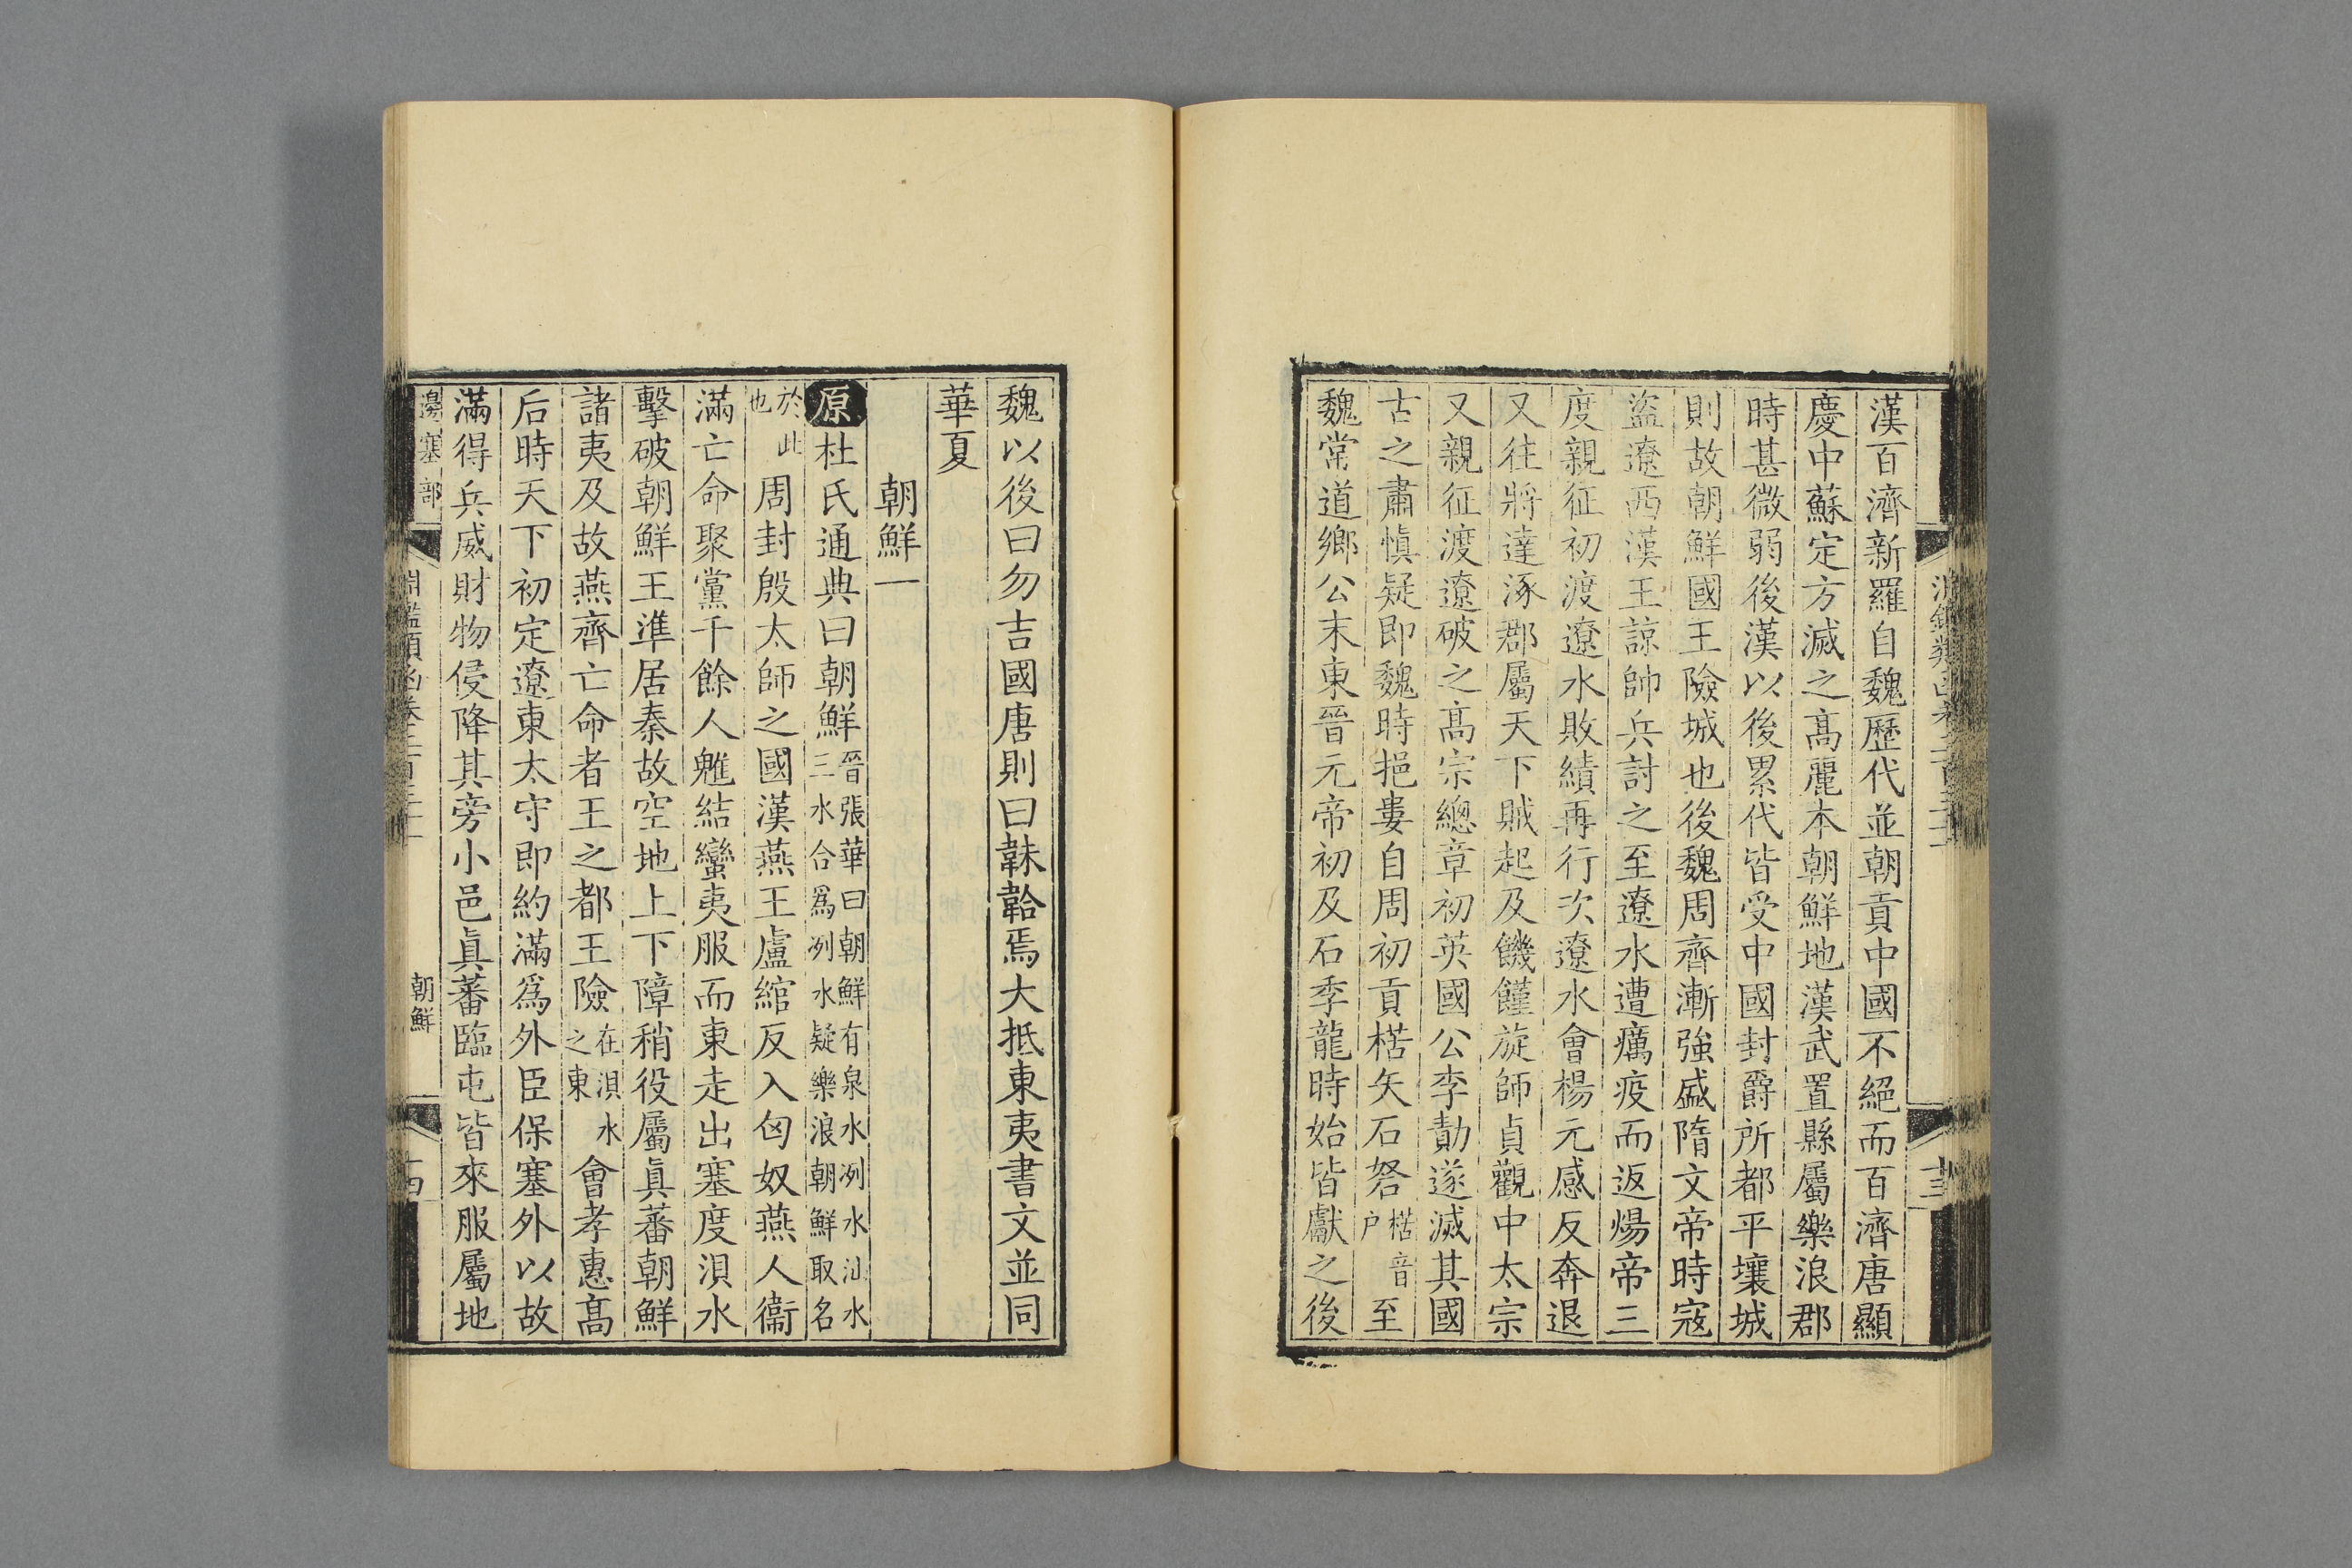 漢百濟新羅自魏歷代並朝貢中國不絕而百濟唐顯
慶中蘇定方滅之髙麗本朝鮮地漢武置縣屬樂浪郡
時甚微弱後漢以後累代皆受中國封爵所都平壤城
則故朝鮮國王險城也後魏周齊漸強盛隋文帝時宼
盜遼西漢王諒帥兵討之至遼水遭癘疫而返煬帝三
度親征初渡遼水敗績再行次遼水會楊元感反奔退
又往將達涿郡屬天下賊起及饑饉旋師貞觀中太宗
又親征渡遼破之髙宗總章初英國公李勣遂滅其國
古之肅慎疑即魏時挹婁自周初貢楛矢石砮楛音户至
魏常道鄉公末東晉元帝初及石季龍時始皆獻之後
魏以後曰勿吉國唐則曰靺鞨焉大抵東夷書文並同
華夏
朝鮮一
原杜氏通典曰朝鮮晉張華曰朝鮮有泉水洌水汕水三水合爲洌水疑樂浪朝鮮取名
於此也周封殷太師之國漢燕王盧綰反入匈奴燕人衞
滿亡命聚黨千餘人魋結蠻夷服而東走出塞度浿水
擊破朝鮮王準居秦故空地上下障稍役屬眞蕃朝鮮
諸夷及故燕齊亡命者王之都王險在浿水之東會孝惠髙
后時天下初定遼東太守即約滿爲外臣保塞外以故
滿得兵威財物侵降其旁小邑眞蕃臨屯皆來服屬地
邊塞部
朝鮮